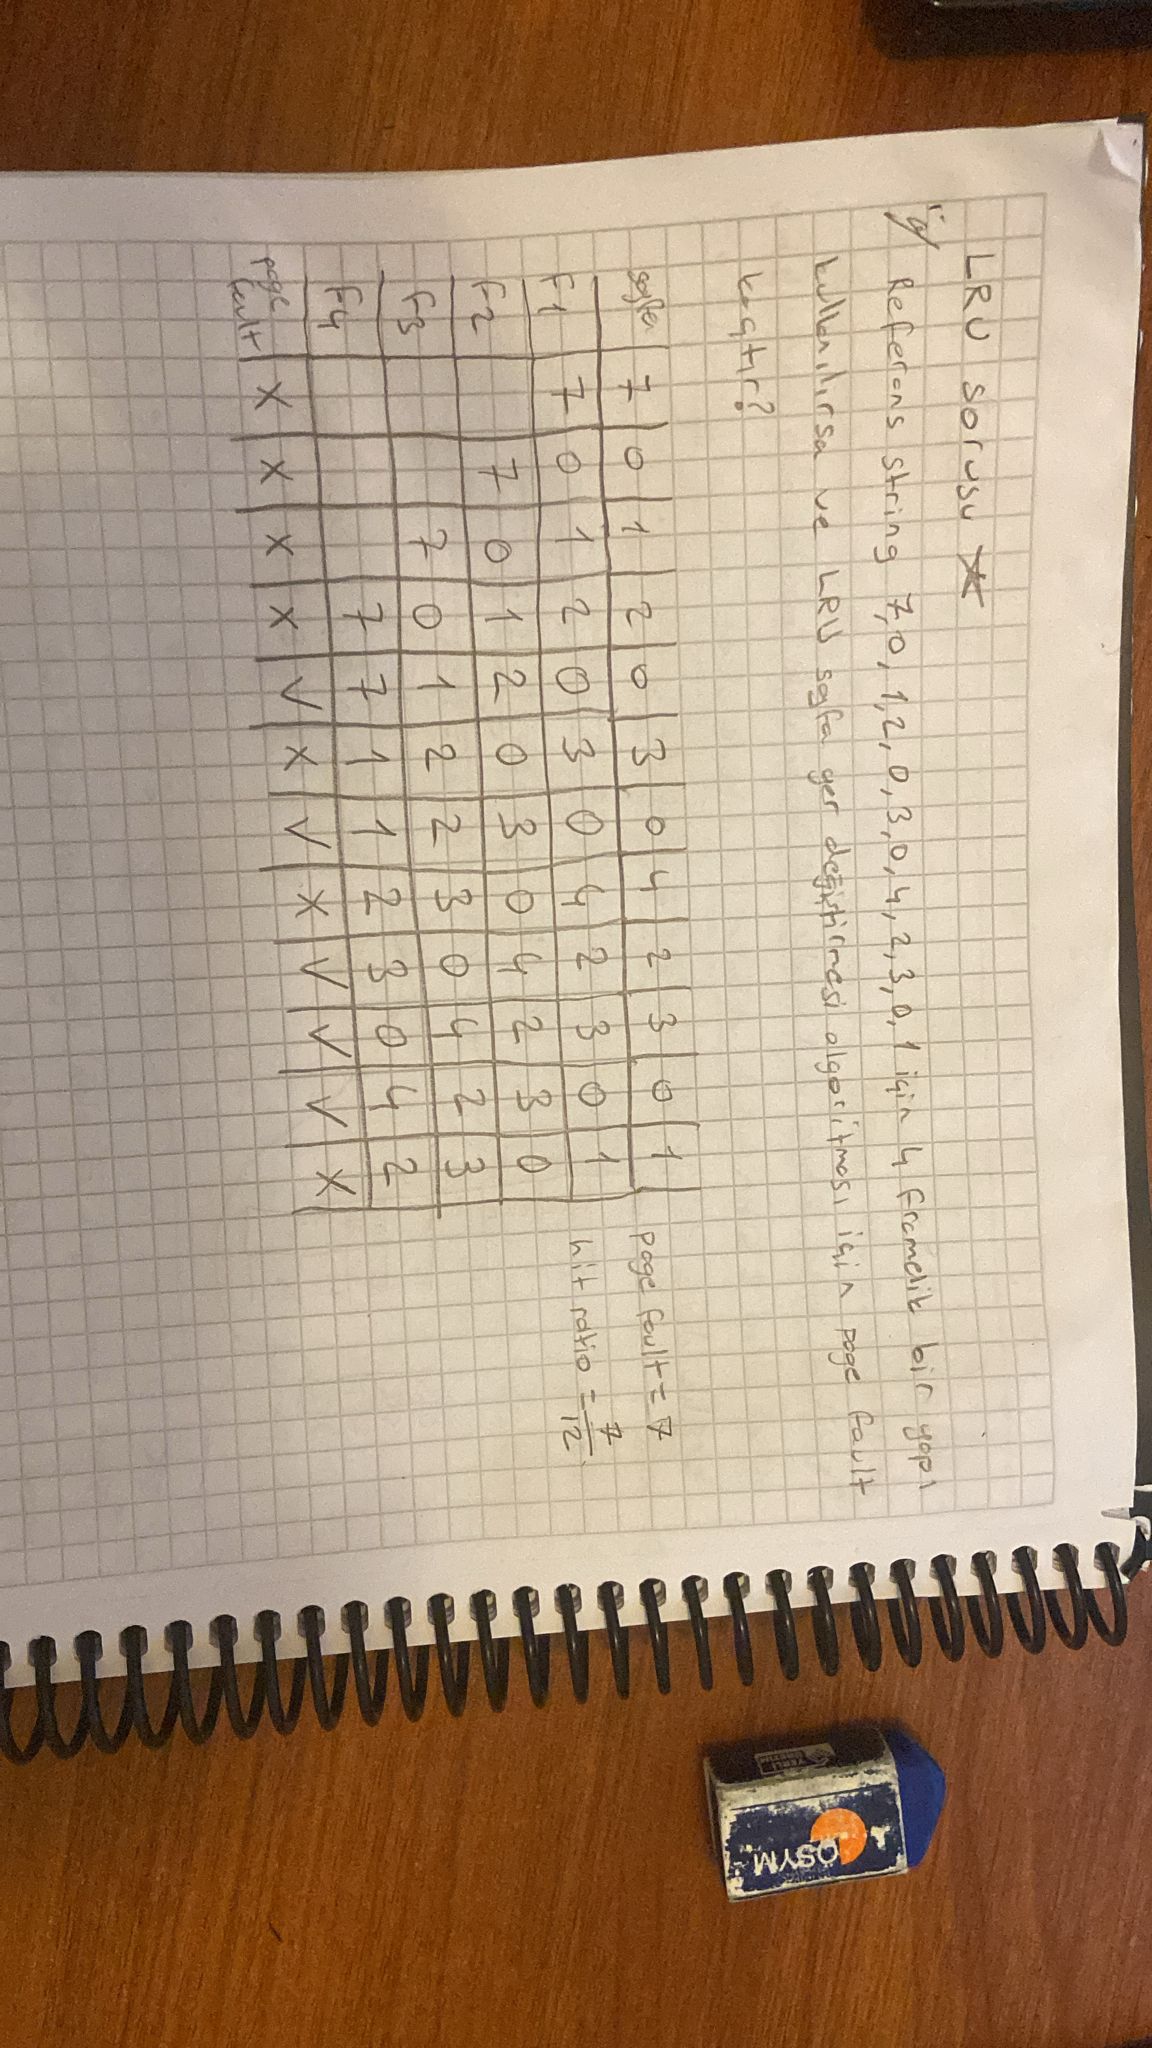 LRU sorusu
Referans string 7,0,1,2,0,3,0,4,2,3,0,1 için 4 framelik bir yapı
kullanılırsa ve LRU sayfa yer değiştirmesi algoritması için page fault
kaçtır?
sayfa 7 0 1 2 0 3 0 4 2 3 0 1
F1 7 0 1 2 0 3 0 4 2 3 0 1
F2 7 0 1 2 0 3 0 4 2 3 0
F3 7 0 1 2 2 3 0 4 2 3
F4 7 7 1 1 2 3 0 4 2
page fault X X X X ✓ X ✓ X ✓ ✓ ✓ X
page fault = 7
hit ratio = 7/12
ÖSYM